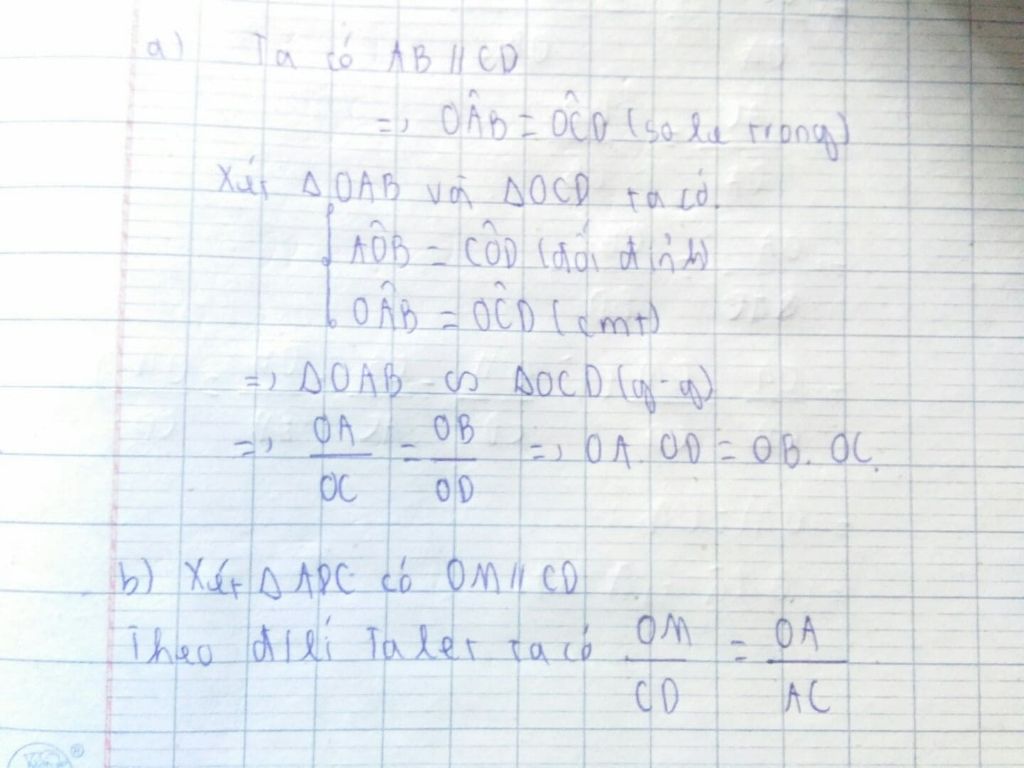 a) Ta có AB // CD
=> OÂB = OĈD (so le trong)
Xét ΔOAB và ΔOCD ta có
AÔB = CÔD (đối đỉnh)
OÂB = OĈD (cmt)
=> ΔOAB ∽ ΔOCD (g-g)
=> OA/OC = OB/OD => OA. OD = OB. OC.
b) Xét ΔADC có OM // CD
Theo đ/lí Talet ta có OM/CD = OA/AC